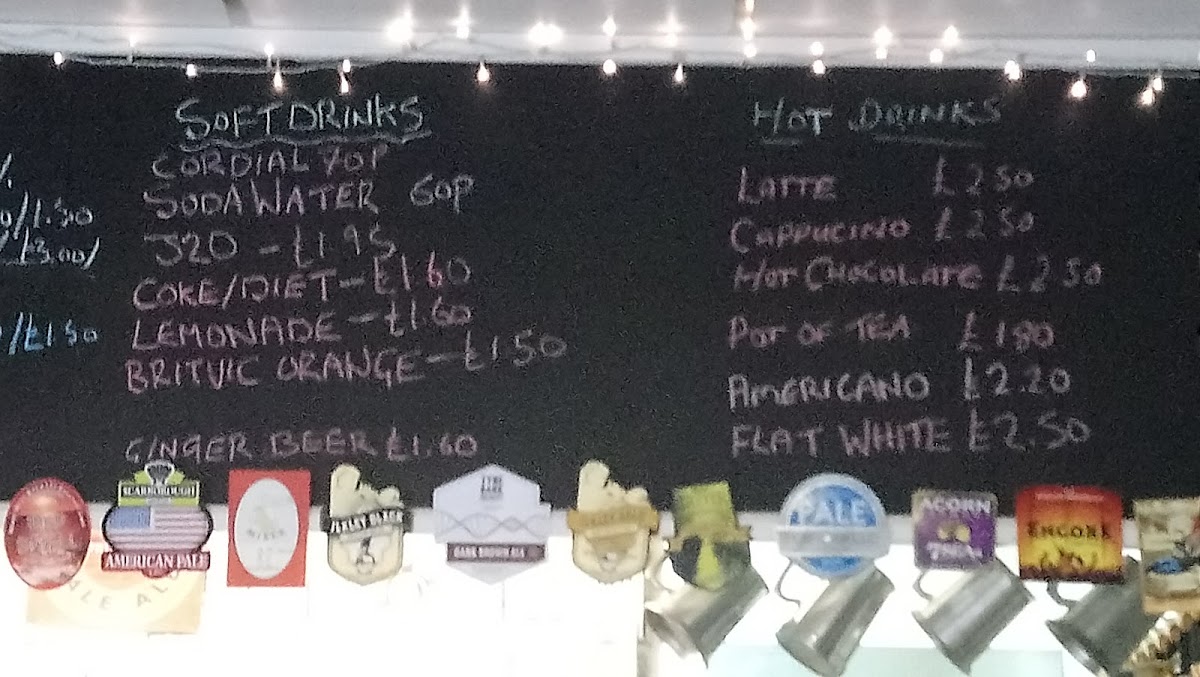 SOFT DRINKS
CORDIAL 70P
SODA WATER 60P
J20 - £1.95
COKE/DIET - £1.60
LEMONADE - £1.60
BRITVIC ORANGE - £1.50
GINGER BEER £1.60
/1.50
£3.00/
/£1.50
HOT DRINKS
LATTE £2.50
CAPPUCINO £2.50
HOT CHOCOLATE £2.50
POT OF TEA £1.80
AMERICANO £2.20
FLAT WHITE £2.50
SCARBOROUGH
AMERICAN PALE
DARK BROWN ALE
PALE
ACORN
ENCORE
ALE